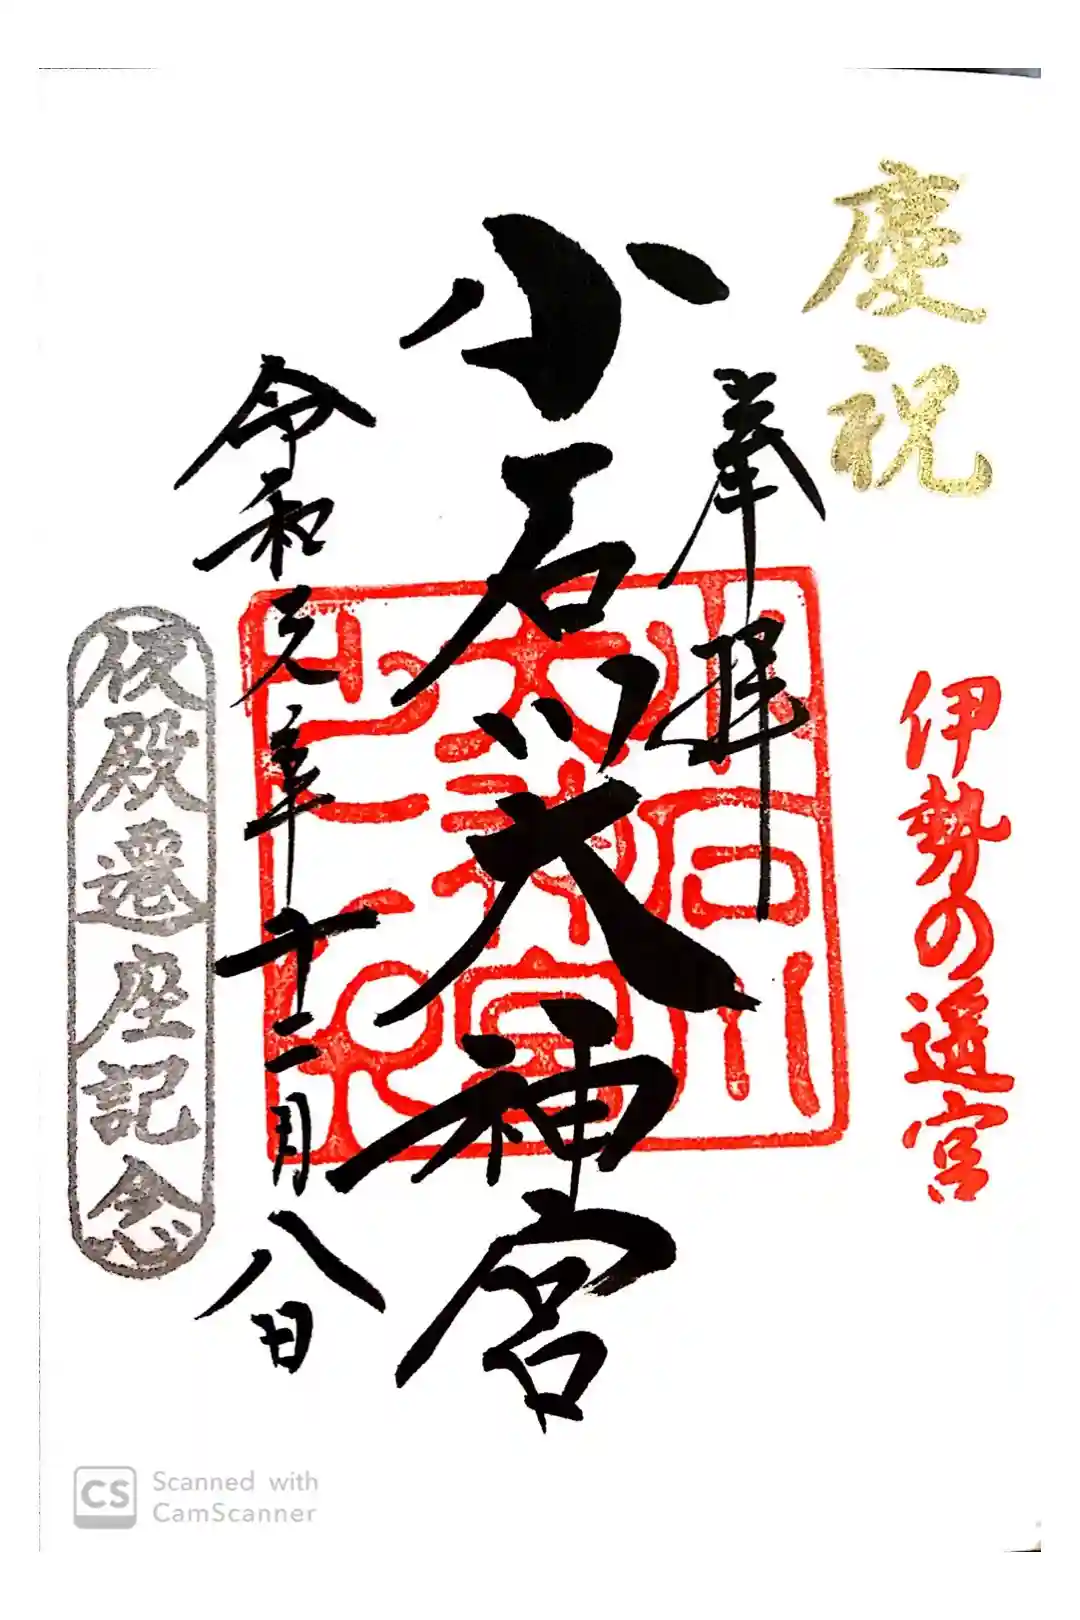 慶祝
伊勢の遥宮
奉拝
小石川大神宮
小石川
大神宮
令和元年十二月八日
仮殿遷座記念
CS
Scanned with
CamScanner